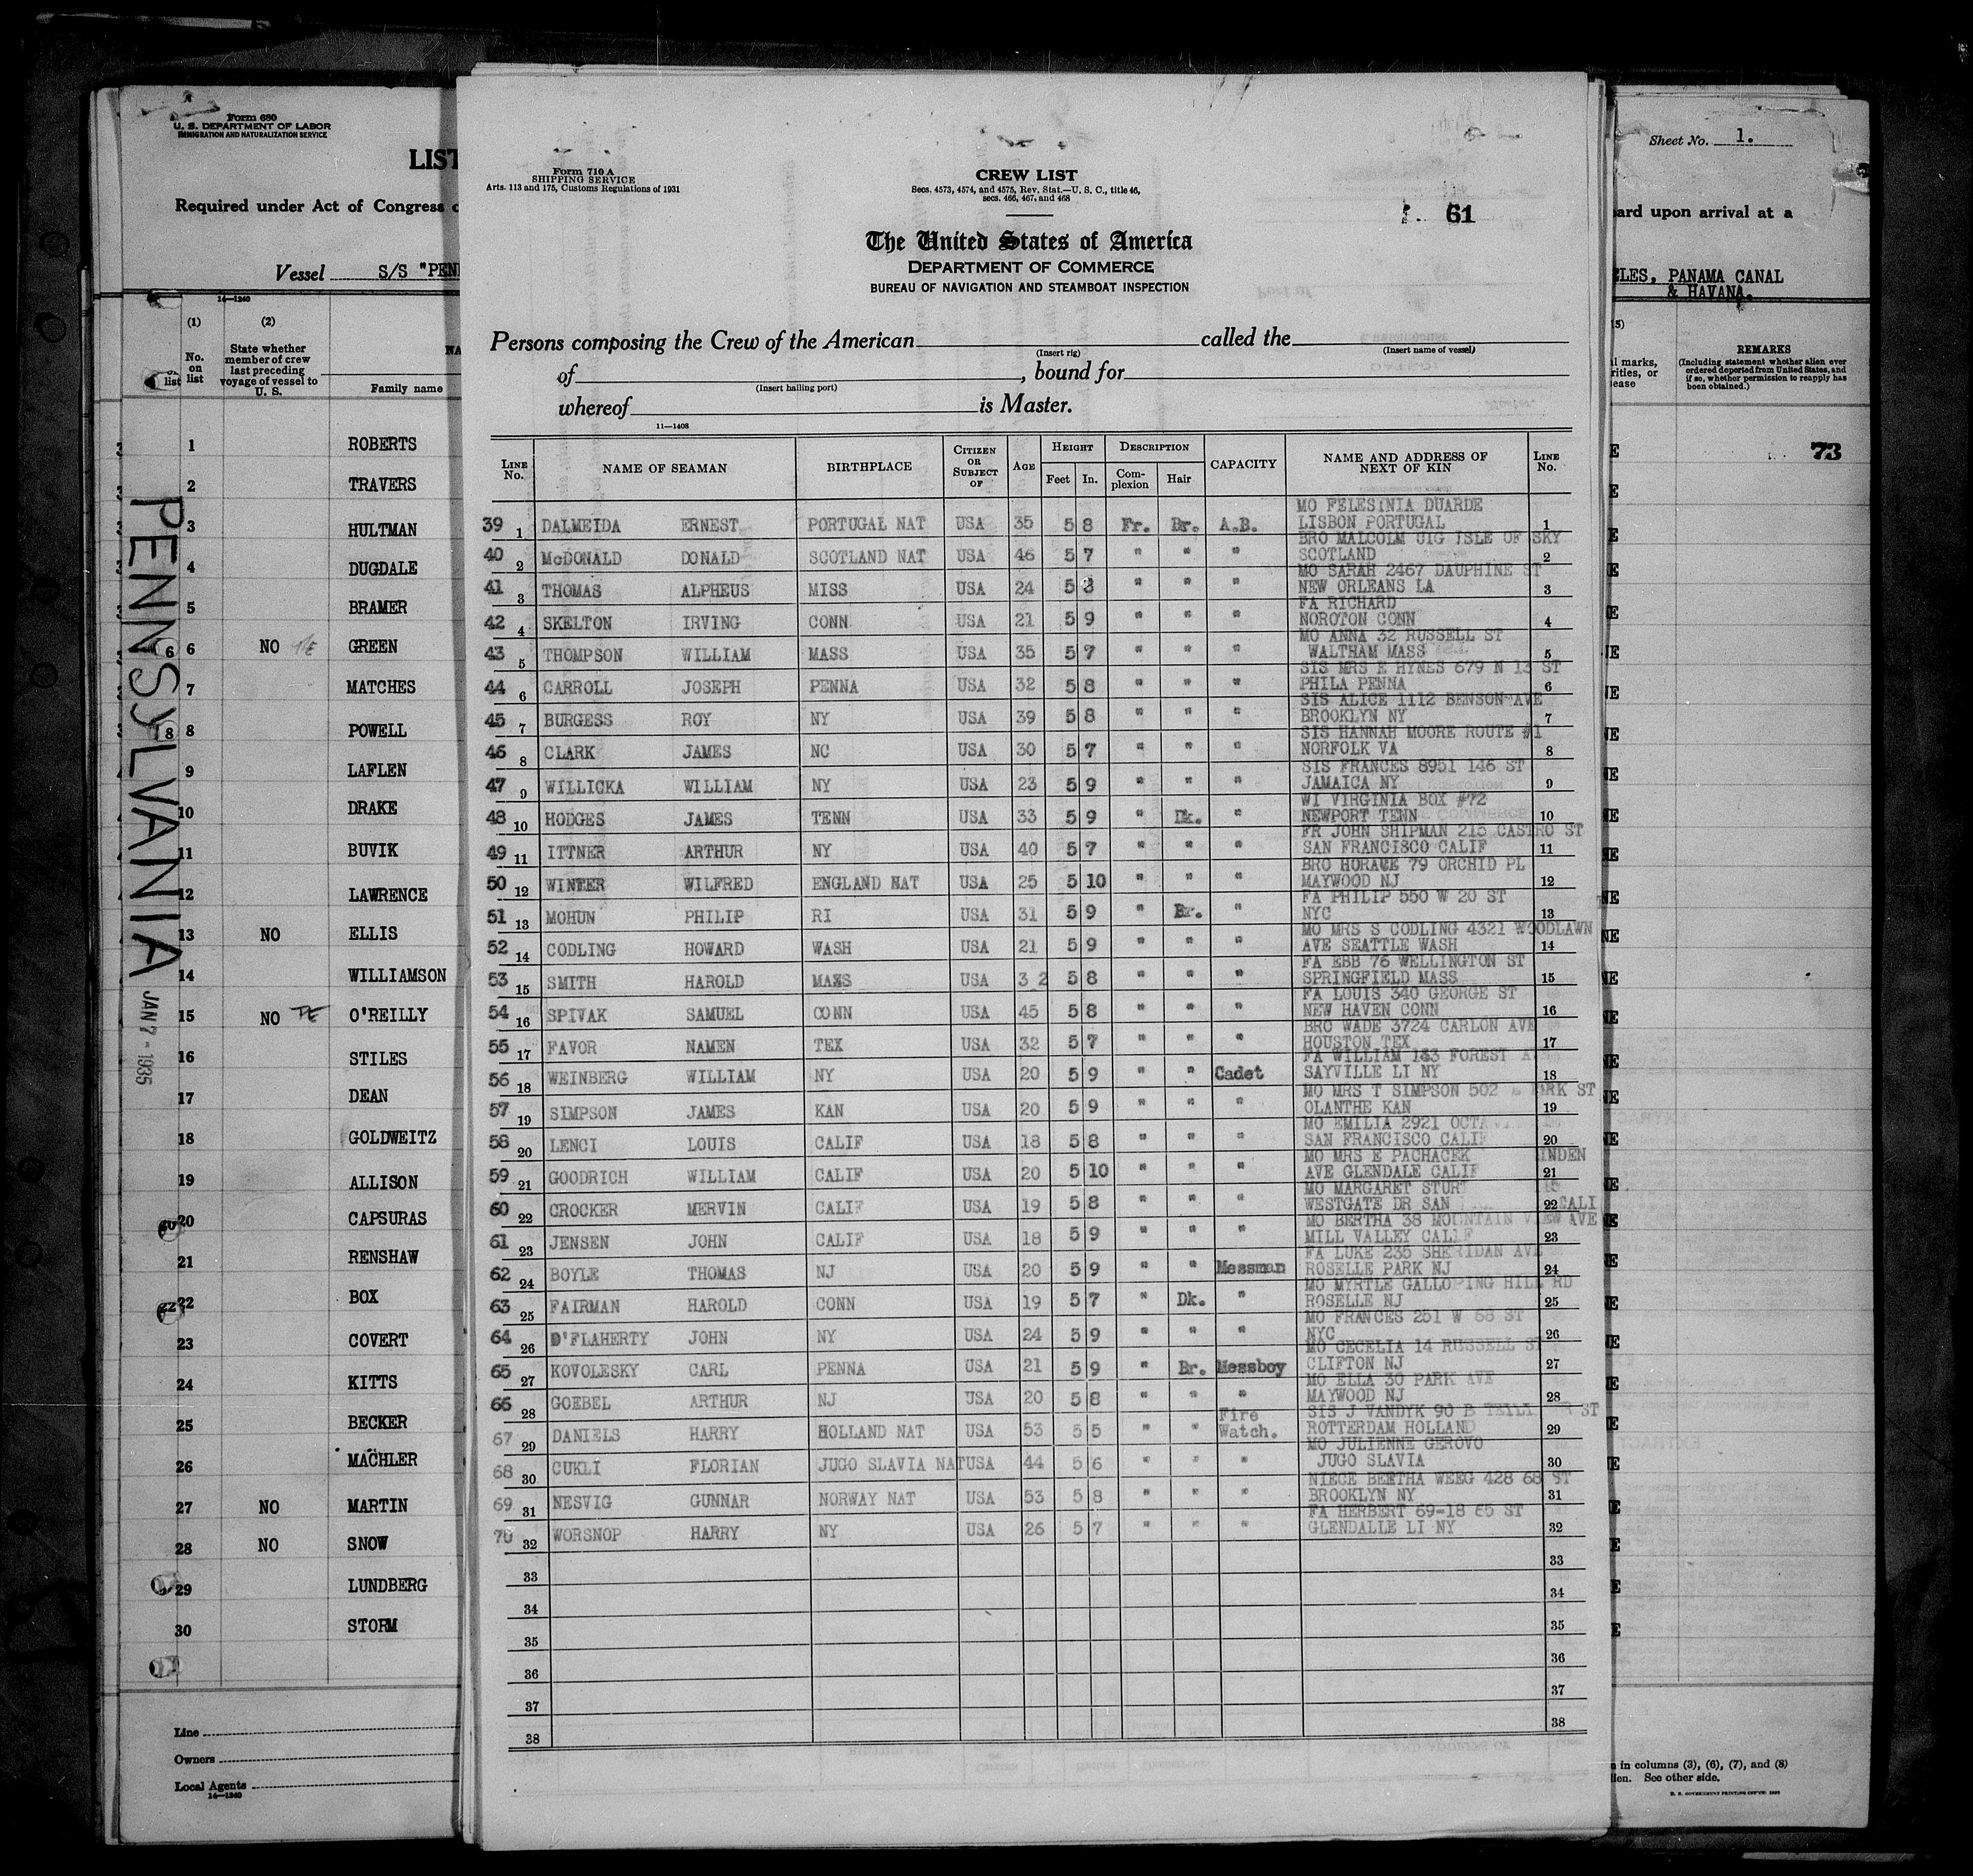 Form 680
U. S. DEPARTMENT OF LABOR
IMMIGRATION AND NATURALIZATION SERVICE
LIST
Required under Act of Congress
Vessel S/S "PEN
14—1240
(1) (2)
No. on list
State whether member of crew last preceding voyage of vessel to U. S.
NA
Family name
1 ROBERTS
2 TRAVERS
3 HULTMAN
4 DUGDALE
5 BRAMER
6 6 NO GREEN
7 MATCHES
8 8 POWELL
9 LAFLEN
10 DRAKE
11 BUVIK
12 LAWRENCE
13 NO ELLIS
14 WILLIAMSON
15 NO O'REILLY
16 STILES
17 DEAN
18 GOLDWEITZ
19 ALLISON
20 CAPSURAS
21 RENSHAW
22 BOX
23 COVERT
24 KITTS
25 BECKER
26 MACHLER
27 NO MARTIN
28 NO SNOW
29 LUNDBERG
30 STORM
PENNSYLVANIA
JAN 7 - 1935
Line
Owners
Local Agents
14—1240
Form 710 A
SHIPPING SERVICE
Arts. 113 and 175, Customs Regulations of 1931
CREW LIST
Secs. 4573, 4574, and 4575, Rev. Stat.—U. S. C., title 46,
secs. 466, 467, and 468
61
The United States of America
DEPARTMENT OF COMMERCE
BUREAU OF NAVIGATION AND STEAMBOAT INSPECTION
Persons composing the Crew of the American called the
(Insert rig) (Insert name of vessel)
of , bound for
(Insert hailing port)
whereof is Master.
11—1408
LINE No. NAME OF SEAMAN BIRTHPLACE CITIZEN OR SUBJECT OF AGE HEIGHT Feet In. DESCRIPTION Complexion Hair CAPACITY NAME AND ADDRESS OF NEXT OF KIN LINE No.
MO FELESINIA DUARDE
39 1 DALMEIDA ERNEST PORTUGAL NAT USA 35 5 8 Fr. Br. A.B. LISBON PORTUGAL 1
BRO MALCOLM UIG ISLE OF SKY
40 2 McDONALD DONALD SCOTLAND NAT USA 46 5 7 " " " SCOTLAND 2
MO SARAH 2467 DAUPHINE ST
41 3 THOMAS ALPHEUS MISS USA 24 5 8 " " " NEW ORLEANS LA 3
FA RICHARD
42 4 SKELTON IRVING CONN USA 21 5 9 " " " NOROTON CONN 4
MO ANNA 32 RUSSELL ST
43 5 THOMPSON WILLIAM MASS USA 35 5 7 " " " WALTHAM MASS 5
SIS MRS E HYNES 679 N 13 ST
44 6 CARROLL JOSEPH PENNA USA 32 5 8 " " " PHILA PENNA 6
SIS ALICE 1112 BENSON AVE
45 7 BURGESS ROY NY USA 39 5 8 " " " BROOKLYN NY 7
SIS HANNAH MOORE ROUTE #1
46 8 CLARK JAMES NC USA 30 5 7 " " " NORFOLK VA 8
SIS FRANCES 8951 146 ST
47 9 WILLICKA WILLIAM NY USA 23 5 9 " " " JAMAICA NY 9
WI VIRGINIA BOX #72
48 10 HODGES JAMES TENN USA 33 5 9 " Dk. " NEWPORT TENN 10
FR JOHN SHIPMAN 215 CASTRO ST
49 11 ITTNER ARTHUR NY USA 40 5 7 " " " SAN FRANCISCO CALIF 11
BRO HORACE 79 ORCHID PL
50 12 WINTER WILFRED ENGLAND NAT USA 25 5 10 " " " MAYWOOD NJ 12
FA PHILIP 550 W 20 ST
51 13 MOHUN PHILIP RI USA 31 5 9 " Br. " NYC 13
MO MRS S CODLING 4321 WOODLAWN
52 14 CODLING HOWARD WASH USA 21 5 9 " " " AVE SEATTLE WASH 14
FA EBB 76 WELLINGTON ST
53 15 SMITH HAROLD MASS USA 3 2 5 8 " " " SPRINGFIELD MASS 15
FA LOUIS 340 GEORGE ST
54 16 SPIVAK SAMUEL CONN USA 45 5 8 " " " NEW HAVEN CONN 16
BRO WADE 3724 CARLON AVE
55 17 FAVOR NAMEN TEX USA 32 5 7 " " " HOUSTON TEX 17
FA WILLIAM 183 FOREST
56 18 WEINBERG WILLIAM NY USA 20 5 9 " " Cadet SAYVILLE LI NY 18
MO MRS T SIMPSON 502 PARK ST
57 19 SIMPSON JAMES KAN USA 20 5 9 " " " OLANTHE KAN 19
MO EMILIA 2921
58 20 LENCI LOUIS CALIF USA 18 5 8 " " " SAN FRANCISCO CALIF 20
MO MRS E PACHACEK
59 21 GOODRICH WILLIAM CALIF USA 20 5 10 " " " AVE GLENDALE CALIF 21
MO MARGARET
60 22 CROCKER MERVIN CALIF USA 19 5 8 " " " WESTGATE DR SAN CALI 22
MO BERTHA 38 MOUNTAIN VIEW AVE
61 23 JENSEN JOHN CALIF USA 18 5 9 " " " MILL VALLEY CALIF 23
FA LUKE 235 SHERIDAN AVE
62 24 BOYLE THOMAS NJ USA 20 5 9 " " Messman ROSELLE PARK NJ 24
MO MYRTLE GALLOPING HILL RD
63 25 FAIRMAN HAROLD CONN USA 19 5 7 " Dk. " ROSELLE NJ 25
MO FRANCES 251 W 68 ST
64 26 D'FLAHERTY JOHN NY USA 24 5 9 " " " NYC 26
MO CECELIA 14 RUSSELL ST
65 27 KOVOLESKY CARL PENNA USA 21 5 9 " Br. Messboy CLIFTON NJ 27
MO ELLA 30 PARK AVE
66 28 GOEBEL ARTHUR NJ USA 20 5 8 " " " MAYWOOD NJ 28
SIS J VANDYK 90 B ST
67 29 DANIELS HARRY HOLLAND NAT USA 53 5 5 " " Fire Watch. ROTTERDAM HOLLAND 29
MO JULIENNE GEROVO
68 30 CUKLI FLORIAN JUGO SLAVIA NAT USA 44 5 6 " " " JUGO SLAVIA 30
NIECE BERTHA WEEG 428 68 ST
69 31 NESVIG GUNNAR NORWAY NAT USA 53 5 8 " " " BROOKLYN NY 31
FA HERBERT 69-18 65 ST
70 32 WORSNOP HARRY NY USA 26 5 7 " " " GLENDALLE LI NY 32
33 33
34 34
35 35
36 36
37 37
38 38
Sheet No. 1.
ard upon arrival at a
LES, PANAMA CANAL
& HAVANA.
REMARKS
(Including statement whether alien ever ordered deported from United States, and if so, whether permission to reapply has been obtained.)
73
in columns (3), (6), (7), and (8)
See other side.
U. S. GOVERNMENT PRINTING OFFICE